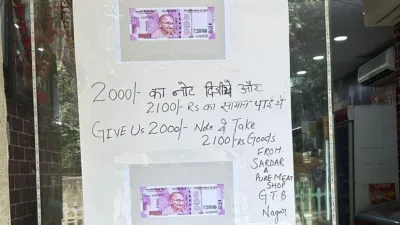 2000/- का नोट दिजीये और
2100/- Rs का सामान पाईये
GIVE US 2000/- Note & Take
2100/- Rs Goods
FROM
SARDAR
A
PURE MEAT
SHOP
G.T.B
Nagar